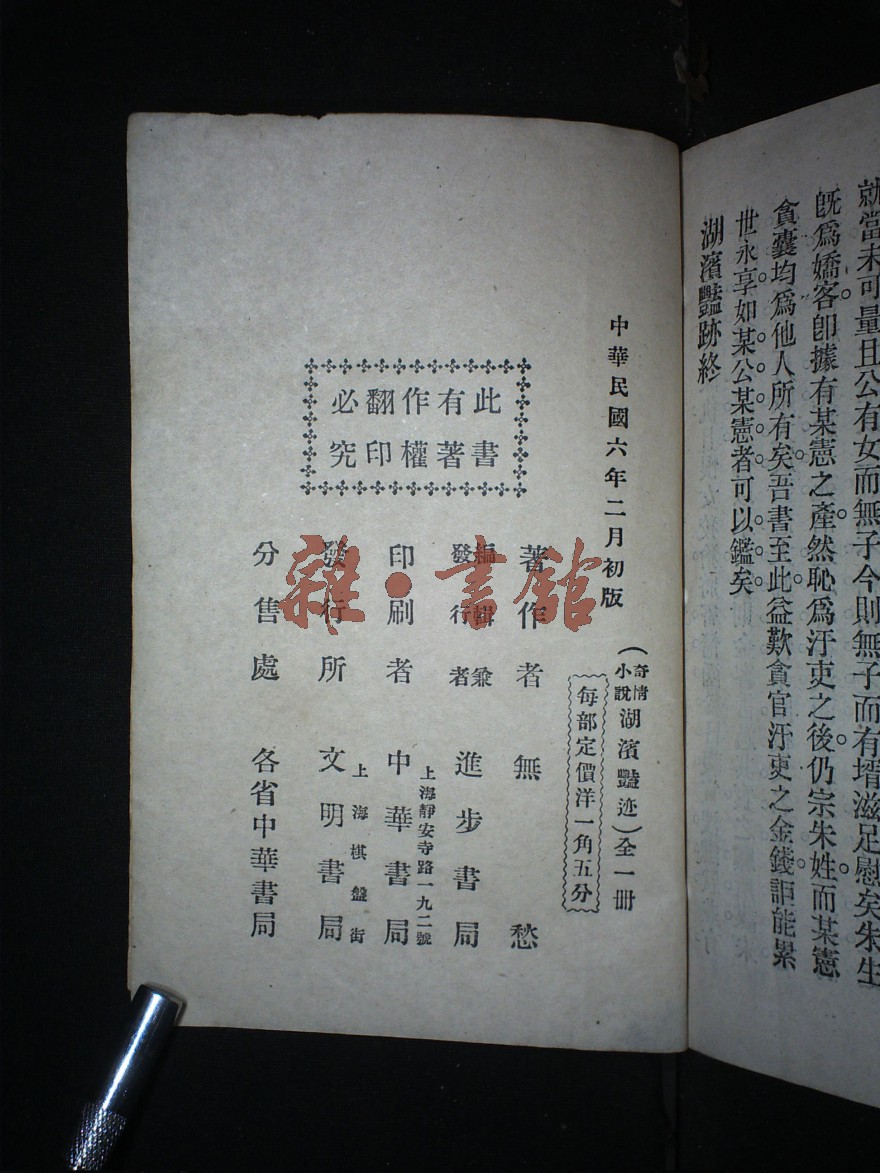 就當未可量且公有女而無子今則無子而有壻滋足慰矣朱生
旣爲嬌客卽據有某憲之產然恥爲汙吏之後仍宗朱姓而某憲
貪囊均爲他人所有矣吾書至此益歎貪官汙吏之金錢詎能累
世永享如某公某憲者可以鑑矣
湖濱豔跡終
中華民國六年二月初版
(奇情小說湖濱豔迹)全一冊
每部定價洋一角五分
此書有著作權翻印必究
著作者 無愁
編輯兼發行者 進步書局
上海靜安寺路一九二號
印刷者 中華書局
上海棋盤街
發行所 文明書局
分售處 各省中華書局
雜·書館